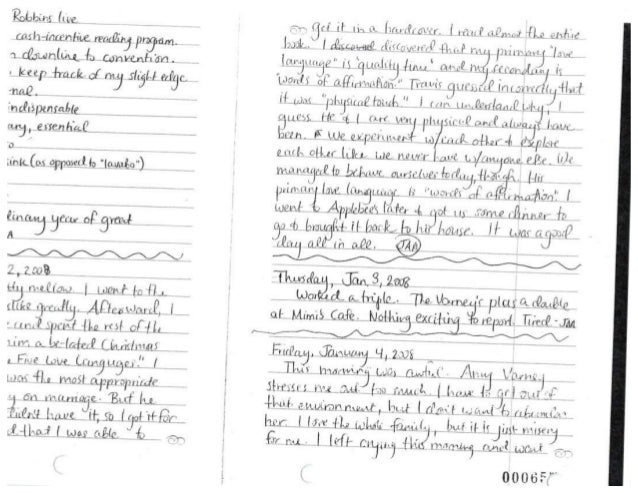 Robbins live
cash-incentive reading program.
downline to convention.
keep track of my slight edge
nal.
indispensable
ary, essential
o
ink (as opposed to "lavabo")
dinary year of great
A
2, 2008
tty mellow. I went to th
slike greatly. Afterward, I
and spent the rest of the
him a be-lated Christmas
e Five Love Languages." I
was the most appropriate
y on marriage. But he
didn't have it, so I got it for
d that I was able to
get it in a hardcover. I read almost the entire
book. I discovered discovered that my primary "love
language" is "quality time" and my secondary is
"words of affirmation." Travis guessed incorrectly that
it was "physical touch." I can understand why, I
guess. He & I are very physical and always have
been. We experiment w/each other & explore
each other like we never have w/anyone else. We
managed to behave ourselves today, though. His
primary love language is "words of affirmation." I
went to Applebee's later & got us some dinner to
go & brought it back to his house. It was a good
day all in all. JAA
Thursday, Jan 3, 2008
Worked a triple. The Varney's plus a double
at Mimi's Cafe. Nothing exciting to report. Tired - JAA
Friday, January 4, 2008
This morning was awful. Amy Varney
stresses me out too much. I have to get out of
that environment, but I don't want to abandon
her. I love the whole family, but it is just misery
for me. I left crying this morning and went
000657